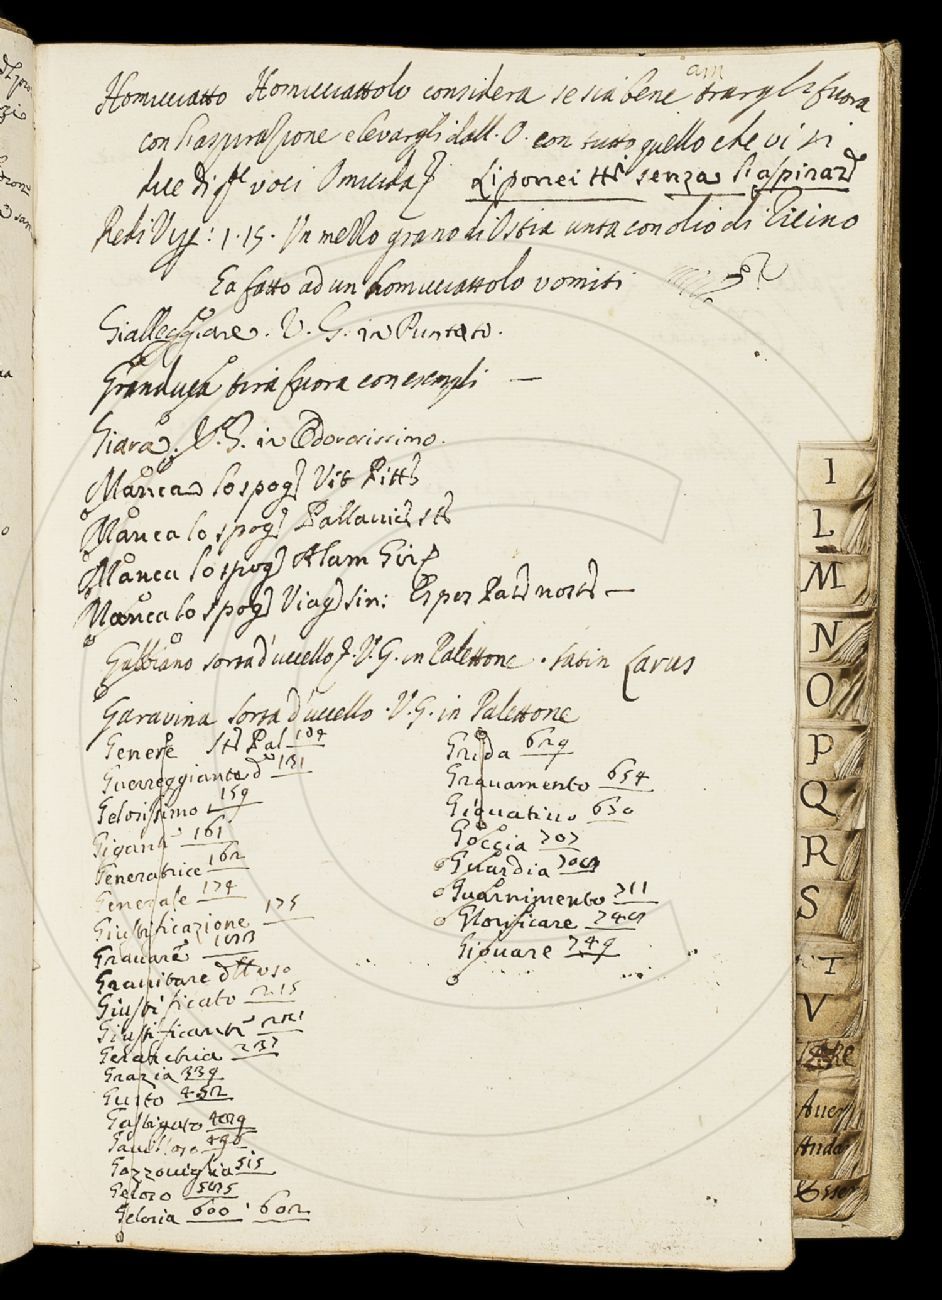 am
Homicciatto Homicciattolo considera se sia bene trargli fuora
con l'aspirazione e levargli dall. O. con tutto quello che vi si
dice di voci Omicida
Li porrei tti senza l'aspiraz
Redi Vip: 1.15. Un mezzo grano di Ostia unta con olio di Ricino
Ea fatto ad un homicciattolo vomiti
Gialleggiare. V. G. in Puntato.
Granduca tira fuora con esempli —
Giara. V. G. in Odorosissimo.
Manca lo spog Vit Pitt
Manca lo spog Pallavic st
Manca lo spog Alam Gir
Manca lo spog Viag sin: Esper Pat nost —
Gabbiano sorta d'uccello V. G. in Palettone. latin Larus
Garavina sorta d'uccello. V. G. in Palettone
Genere St Pal 104
Guerreggiante d 131
Gelosissimo 159
Giganti 161
Generatrice 162
Generale 174
Giustificazione 175
Gravare
Gravitare
Giustificato 215
Giustificanti
Geometria 237
Grazia 339
Gusto 452
Gastigato
490
Gozzoviglia 515
Geloso
Gelosia 600 . 602
Grida 629
Gravamento 654
630
Goccia 707
Guardia
Guarnimento 711
Glorificare
Giovare 749
I
L
M
N
O
P
Q
R
S
T
V
Aver
Andar
Esser